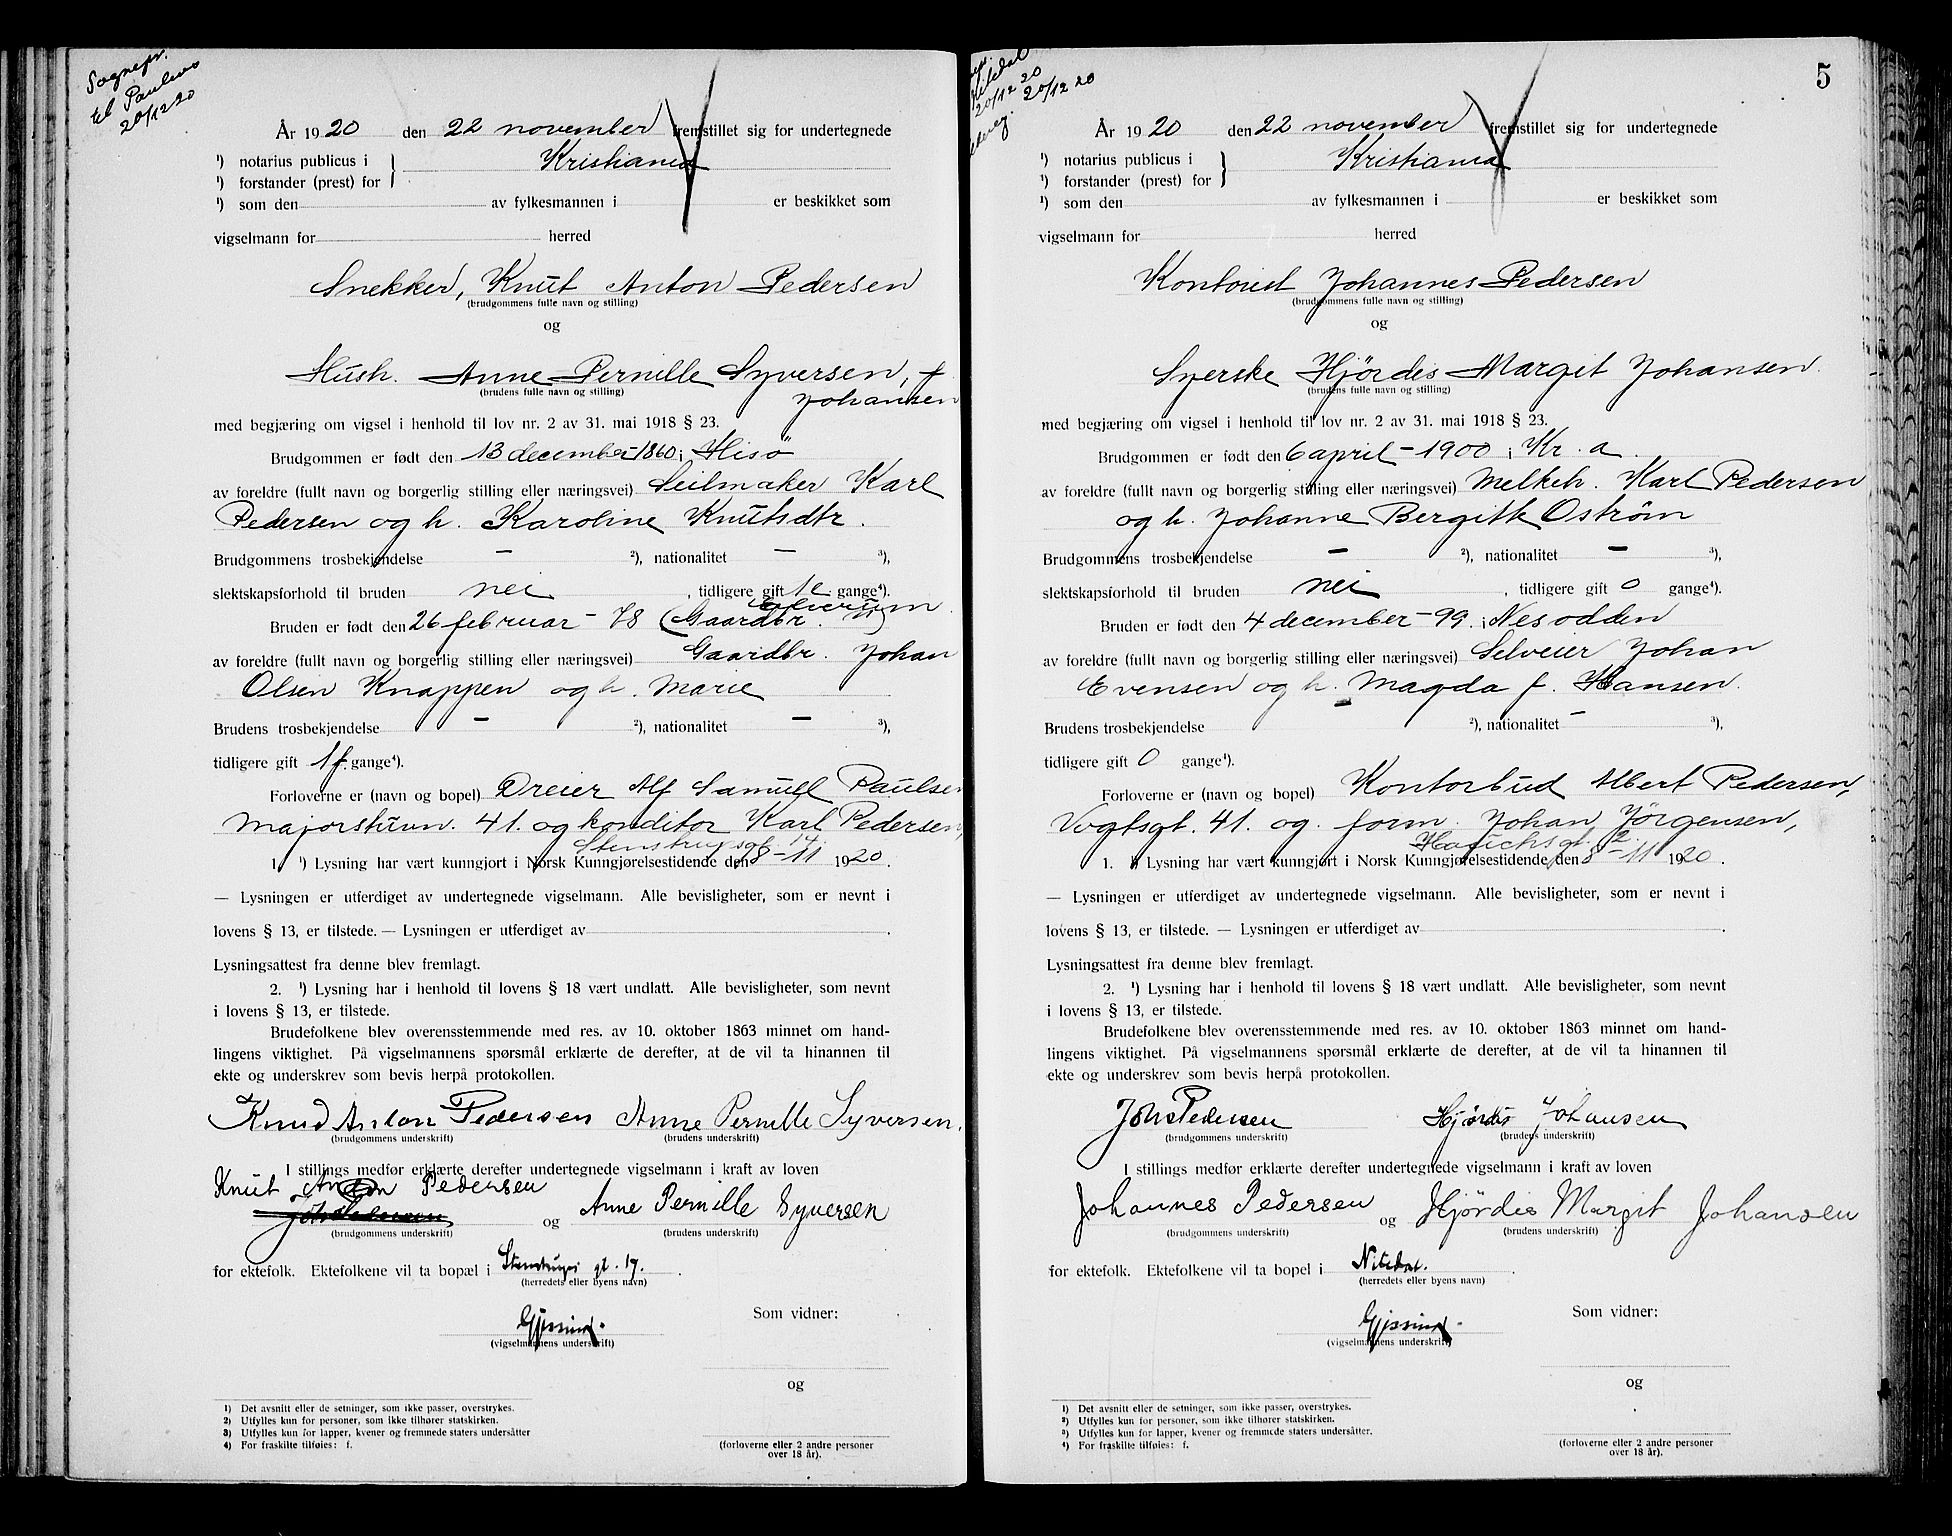 Sognepr.
til Paulus
20/12 20
År 1920 den 22 november fremstillet sig for undertegnede
¹) notarius publicus i } Kristiania
¹) forstander (prest) for
¹) som den av fylkesmannen i er beskikket som
vigselmann for herred
Snekker, Knut Anton Pedersen
(brudgommens fulle navn og stilling)
og
Hush. Anne Pernille Syversen, f.
Johansen
(brudens fulle navn og stilling)
med begjæring om vigsel i henhold til lov nr. 2 av 31. mai 1918 § 23.
Brudgommen er født den 13 december - 1860 i Hisö
av foreldre (fullt navn og borgerlig stilling eller næringsvei) Seilmaker Karl
Pedersen og h. Karoline Knutsdtr.
Brudgommens trosbekjendelse — ²), nationalitet — ³),
slektskapsforhold til bruden nei, tidligere gift 1e gange⁴).
Elverum
Bruden er født den 26 februar - 78 (Gaardbr.
av foreldre (fullt navn og borgerlig stilling eller næringsvei) Gaardbr. Johan
Olsen Knappen og h. Marie
Brudens trosbekjendelse — ²), nationalitet — ³),
tidligere gift 1f. gange⁴).
Forloverne er (navn og bopel) Dreier Alf Samuel Paulsen
Majorstuvn. 41. og konditor Karl Pedersen,
Stenstrupsgt. 17.
1. ¹) Lysning har vært kunngjort i Norsk Kunngjørelsestidende den 8 - 11 1920.
— Lysningen er utferdiget av undertegnede vigselmann. Alle bevisligheter, som er nevnt i
lovens § 13, er tilstede. — Lysningen er utferdiget av .
Lysningsattest fra denne blev fremlagt.
2. ¹) Lysning har i henhold til lovens § 18 vært undlatt. Alle bevisligheter, som nevnt
i lovens § 13, er tilstede.
Brudefolkene blev overensstemmende med res. av 10. oktober 1863 minnet om hand-
lingens viktighet. På vigselmannens spørsmål erklærte de derefter, at de vil ta hinannen til
ekte og underskrev som bevis herpå protokollen.
Knud Anton Pedersen Anne Pernille Syversen.
(brudgommens underskrift) (brudens underskrift)
I stillings medfør erklærte derefter undertegnede vigselmann i kraft av loven
Knut Anton Pedersen
Johs Pedersen og Anne Pernille Syversen
(brudgommens underskrift) (brudens underskrift)
for ektefolk. Ektefolkene vil ta bopæl i Stenstrups gt. 17.
(herredets eller byens navn)
Gjessing.
(vigselmannens underskrift)
Som vidner:
og
(forloverne eller 2 andre personer
over 18 år).
1) Det avsnitt eller de setninger, som ikke passer, overstrykes.
2) Utfylles kun for personer, som ikke tilhører statskirken.
3) Utfylles kun for lapper, kvener og fremmede staters undersåtter
4) For fraskilte tilføies: f.
5
Nitedal
20/12 20
20/12 20
År 1920 den 22 november fremstillet sig for undertegnede
¹) notarius publicus i } Kristiania
¹) forstander (prest) for
¹) som den av fylkesmannen i er beskikket som
vigselmann for herred
Kontorist Johannes Pedersen
(brudgommens fulle navn og stilling)
og
Syerske Hjørdis Margit Johansen.
(brudens fulle navn og stilling)
med begjæring om vigsel i henhold til lov nr. 2 av 31. mai 1918 § 23.
Brudgommen er født den 6 april - 1900 i Kr.a.
av foreldre (fullt navn og borgerlig stilling eller næringsvei) Melkeh. Karl Pedersen
og h. Johanne Bergitte Oström
Brudgommens trosbekjendelse — ²), nationalitet — ³),
slektskapsforhold til bruden nei, tidligere gift 0 gange⁴).
Bruden er født den 4 december - 99. i Nesodden
av foreldre (fullt navn og borgerlig stilling eller næringsvei) Selveier Johan
Evensen og h. Magda f. Hansen.
Brudens trosbekjendelse — ²), nationalitet — ³),
tidligere gift 0 gange⁴).
Forloverne er (navn og bopel) Kontorbud Albert Pedersen,
Vogtsgt. 41. og form. Johan Jörgensen,
Hauchsgt. 2.
1. ¹) Lysning har vært kunngjort i Norsk Kunngjørelsestidende den 8 - 11 1920.
— Lysningen er utferdiget av undertegnede vigselmann. Alle bevisligheter, som er nevnt i
lovens § 13, er tilstede. — Lysningen er utferdiget av .
Lysningsattest fra denne blev fremlagt.
2. ¹) Lysning har i henhold til lovens § 18 vært undlatt. Alle bevisligheter, som nevnt
i lovens § 13, er tilstede.
Brudefolkene blev overensstemmende med res. av 10. oktober 1863 minnet om hand-
lingens viktighet. På vigselmannens spørsmål erklærte de derefter, at de vil ta hinannen til
ekte og underskrev som bevis herpå protokollen.
Johs Pedersen Hjørdis Johansen
(brudgommens underskrift) (brudens underskrift)
I stillings medfør erklærte derefter undertegnede vigselmann i kraft av loven
Johannes Pedersen og Hjördis Margit Johansen
(brudgommens underskrift) (brudens underskrift)
for ektefolk. Ektefolkene vil ta bopel i Nitedal.
(herredets eller byens navn)
Gjessing.
(vigselmannens underskrift)
Som vidner:
og
(forloverne eller 2 andre personer
over 18 år).
1) Det avsnitt eller de setninger, som ikke passer, overstrykes.
2) Utfylles kun for personer, som ikke tilhører statskirken.
3) Utfylles kun for lapper, kvener og fremmede staters undersåtter.
4) For fraskilte tilføies: f.